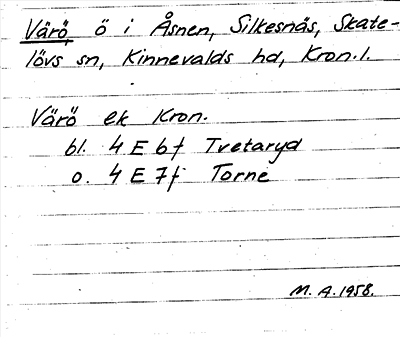 Värö, ö i Åsnen, Silkesnäs, Skate-
lövs sn, Kinnevalds hd, Kron.l.
Värö ek Kron.
bl. 4 E 6f Tvetaryd
o. 4 E 7f Torne
M. A. 1958.